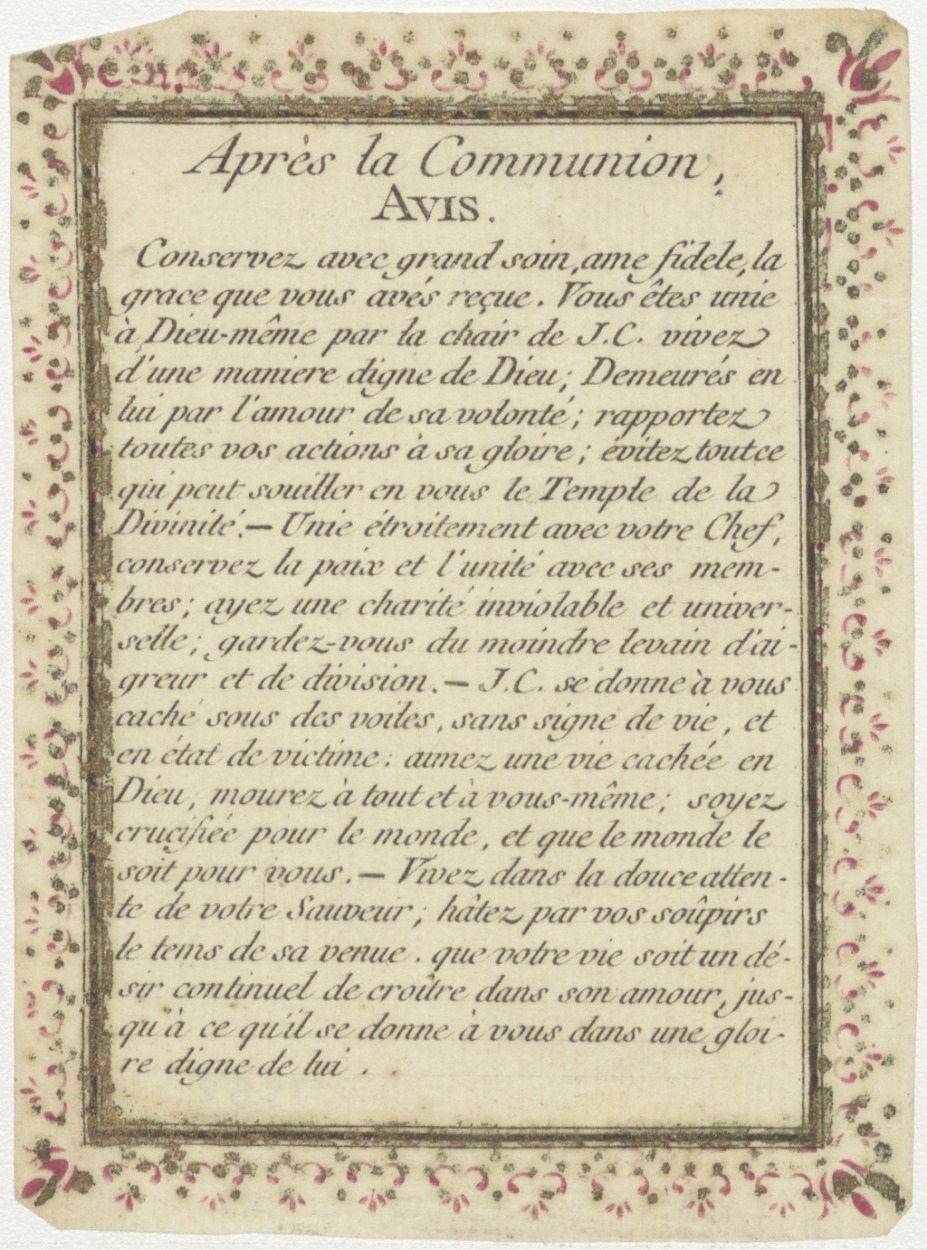 Après la Communion,
AVIS.
Conservez avec grand soin, ame fidele, la
grace que vous avés reçue. Vous êtes unie
à Dieu-même par la chair de J.C. vivez
d'une maniere digne de Dieu; Demeurés en
lui par l'amour de sa volonté; rapportez
toutes vos actions à sa gloire; évitez tout ce
qui peut souiller en vous le Temple de la
Divinité. — Unie étroitement avec votre Chef,
conservez la paix et l'unité avec ses mem-
bres; ayez une charité inviolable et univer-
selle; gardez-vous du moindre levain d'ai-
greur et de division. — J.C. se donne à vous
caché sous des voiles, sans signe de vie, et
en état de victime: aimez une vie cachée en
Dieu, mourez à tout et à vous-même; soyez
crucifiée pour le monde, et que le monde le
soit pour vous. — Vivez dans la douce atten-
te de votre Sauveur; hâtez par vos soûpirs
le tems de sa venue. que votre vie soit un dé-
sir continuel de croître dans son amour, jus-
qu'à ce qu'il se donne à vous dans une gloi-
re digne de lui.